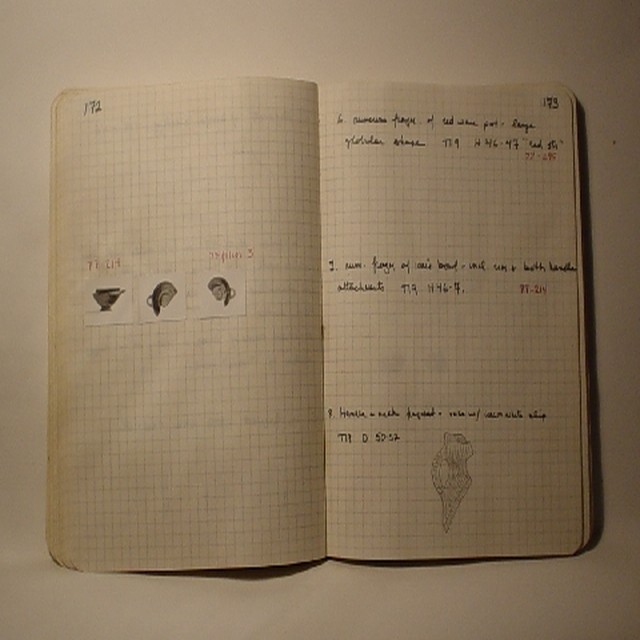 172
77-214
173
6. numerous frags. of red ware pot - large
globular shape TT9 H 46-47 "red
77-
7. num. frags of bowl - incl. + both handle
attachments TT9 H46-7. 77-214
8. Handle + fragment - w/ slip
TT8 D 50-52